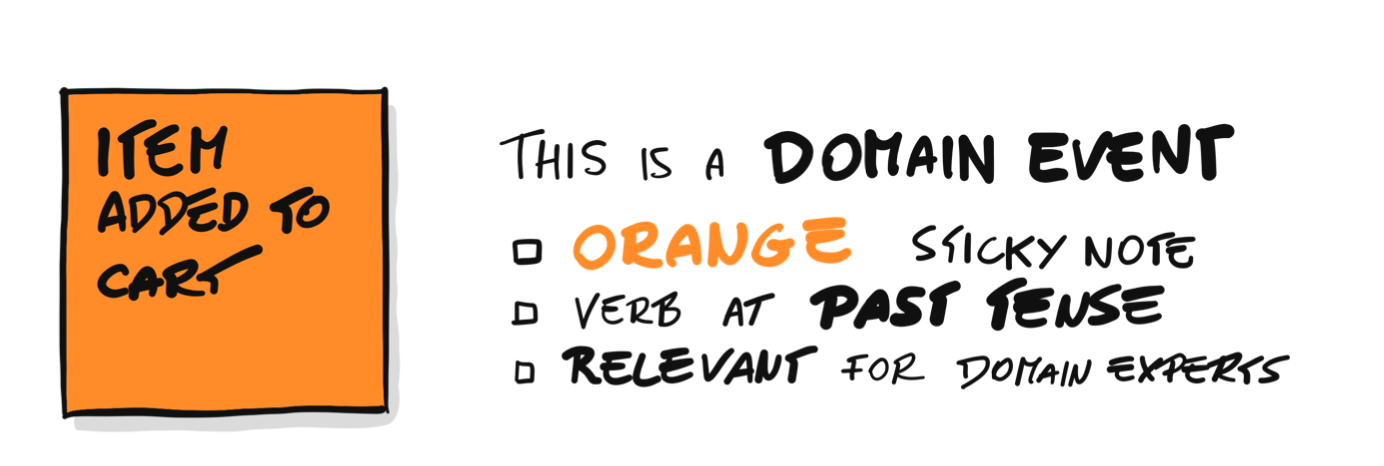 ITEM
ADDED TO
CART
THIS IS A DOMAIN EVENT
ORANGE STICKY NOTE
VERB AT PAST TENSE
RELEVANT FOR DOMAIN EXPERTS